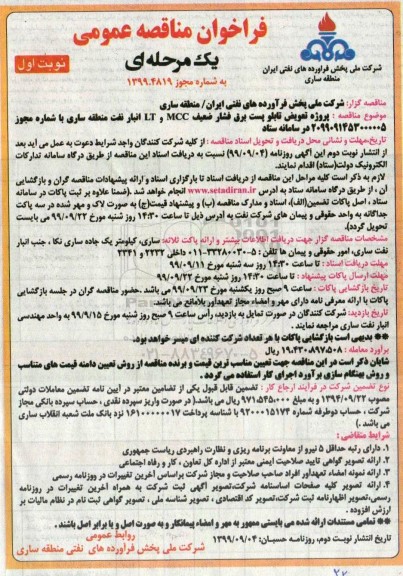 فراخوان مناقصه عمومی
یک مرحله‌ای
به شماره مجوز ۱۳۹۹.۴۸۱۹
نوبت اول
شرکت ملی پخش فرآورده های نفتی ایران
منطقه ساری
مناقصه گزار: شرکت ملی پخش فرآورده های نفتی ایران/ منطقه ساری
موضوع مناقصه : پروژه تعویض تابلو پست برق فشار ضعیف MCC و LT انبار نفت منطقه ساری با شماره مجوز
۲۰۹۹۰۹۱۴۵۳۰۰۰۰۰۵ در سامانه ستاد
تاریخ،مهلت و نشانی محل دریافت و تحویل اسناد مناقصه : از کلیه شرکت کنندگان واجد شرایط دعوت به عمل می آید بعد
از انتشار نوبت دوم این آگهی روزنامه (۹۹/۰۹/۰۴) نسبت به دریافت اسناد این مناقصه از طریق درگاه سامانه تدارکات
الکترونیک دولت(ستاد) اقدام نمایند.
لازم به ذکر است کلیه مراحل این مناقصه از دریافت اسناد تا بارگزاری اسناد و ارائه پیشنهادات مناقصه گران و بازگشایی
آن ، از طریق درگاه سامانه ستاد به آدرس www.setadiran.ir انجام خواهد شد .(ضمنا علاوه بر ثبت پاکات در سامانه
ستاد ، اصل پاکات تضمین(الف)، اسناد و مدارک مناقصه (ب) و پیشنهاد قیمت(ج) به صورت لاک و مهر شده در سه پاکت
جداگانه به واحد حقوقی و پیمان های شرکت نفت به آدرس ذیل تا ساعت ۱۴:۳۰ روز شنبه مورخ ۹۹/۰۹/۲۲ می بایست
تحویل گردد).
مشخصات مناقصه گزار جهت دریافت اطلاعات بیشتر و ارائه پاکت ثلاثه: ساری، کیلومتر یک جاده ساری نکا ، جنب انبار
نفت ساری، امور حقوقی و پیمان ها تلفن : ۵-۳۳۲۸۰۰۳۰-۰۱۱ داخلی ۲۲۳۲ و ۲۳۴۱
مهلت دریافت اسناد : تا ساعت ۱۴:۳۰ روز سه شنبه مورخ ۹۹/۰۹/۱۱
مهلت ارسال پاکات پیشنهاد : تا ساعت ۱۴:۳۰ روز شنبه مورخ ۹۹/۰۹/۲۲
تاریخ بازگشایی پاکات : ساعت ۹ صبح روز یکشنبه مورخ ۹۹/۰۹/۲۳ می باشد .حضور مناقصه گران در جلسه بازگشایی
پاکات با ارائه معرفی نامه دارای مهر و امضاء مجاز تعهدآور بلامانع می باشد.
تاریخ بازدید: شرکت کنندگان در صورت تمایل به بازدید، رأس ساعت ۹ صبح روز شنبه مورخ ۹۹/۹/۱۵ به واحد مهندسی
انبار نفت ساری مراجعه نمایند .
** بدیهی است بازگشایی پاکات با هر تعداد شرکت کننده ای میسر خواهد بود.
برآورد معامله : ۱۹،۴۳۰،۸۹۷،۵۰۸ ریال
شایان ذکر است در این مناقصه جهت تعیین مناسب ترین قیمت و برنده مناقصه از روش تعیین دامنه قیمت های متناسب
و روش بهنگام سازی برآورد اجرای کار استفاده می گردد .
نوع تضمین شرکت در فرآیند ارجاع کار : تضمین قابل قبول یکی از تضامین معتبر در آیین نامه تضمین معاملات دولتی
مصوب ۱۳۹۴/۰۹/۲۲ و به مبلغ ۹۷۱،۵۴۵،۰۰۰ ریال می باشد.( در صورت واریز سپرده نقدی ، حساب سپرده بانکی مجاز
شرکت، حساب دوطرفه شماره ۹۲۰۰۰۱۵۱۷۴ با شناسه پرداخت ۱۶۱۰۰۰۰۰۰۱۷ نزد بانک ملت شعبه انقلاب ساری
می باشد .)
شرایط متقاضی :
۱. دارای رتبه حداقل ۵ نیرو از معاونت برنامه ریزی و نظارت راهبردی ریاست جمهوری
۲. ارائه تصویر گواهی تایید صلاحیت ایمنی معتبر از اداره کل تعاون ، کار و رفاه اجتماعی
۳. ارائه نمونه امضاء تعهدآور افراد صاحب صلاحیت و مجاز شرکت براساس آخرین تغییرات در روزنامه رسمی
۴. ارائه تصویر کلیه صفحات اساسنامه شرکت،تصویر آگهی ثبت شرکت به همراه آخرین تغییرات در روزنامه
رسمی،تصویر اظهارنامه ثبت شرکت،تصویر کد اقتصادی ، تصویر شناسه ملی ، تصویر گواهی ثبت نام در نظام مالیات بر
ارزش افزوده .
** تمامی مستندات ارائه شده می بایستی ممهور به مهر و امضاء پیمانکار و به صورت اصل و یا برابر اصل باشند .
تاریخ انتشار نوبت دوم، روزنامه حسبان: ۱۳۹۹/۰۹/۰۴
روابط عمومی
شرکت ملی پخش فرآورده های نفتی منطقه ساری